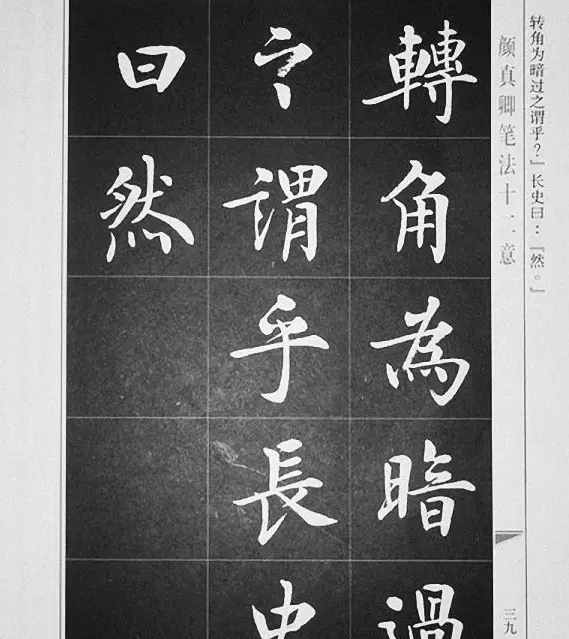 转角为暗过之谓乎？』长史曰：『然。』
颜真卿笔法十二意
三九
轉角為暗過
之謂乎長史
曰然